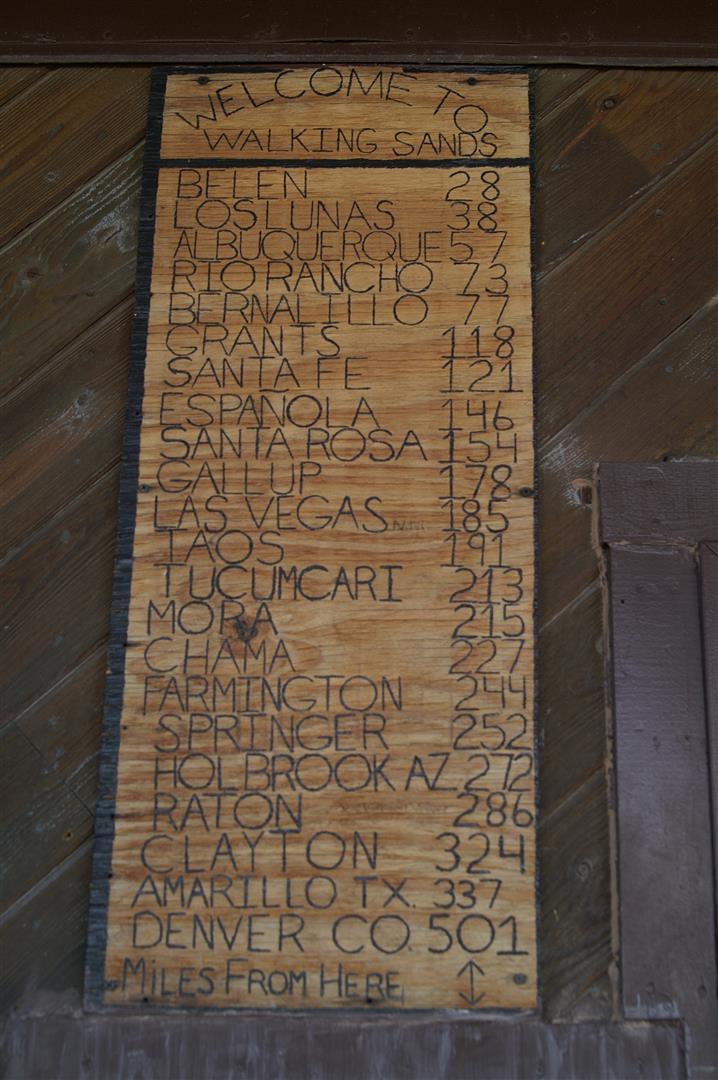 WELCOME TO
WALKING SANDS
BELEN 28
LOS LUNAS 38
ALBUQUERQUE 57
RIO RANCHO 73
BERNALILLO 77
GRANTS 118
SANTA FE 121
ESPANOLA 146
SANTA ROSA 154
GALLUP 178
LAS VEGAS N.M. 185
TAOS 191
TUCUMCARI 213
MORA 215
CHAMA 227
FARMINGTON 244
SPRINGER 252
HOLBROOK AZ. 272
RATON 286
CLAYTON 324
AMARILLO TX. 337
DENVER CO. 501
MILES FROM HERE ↕